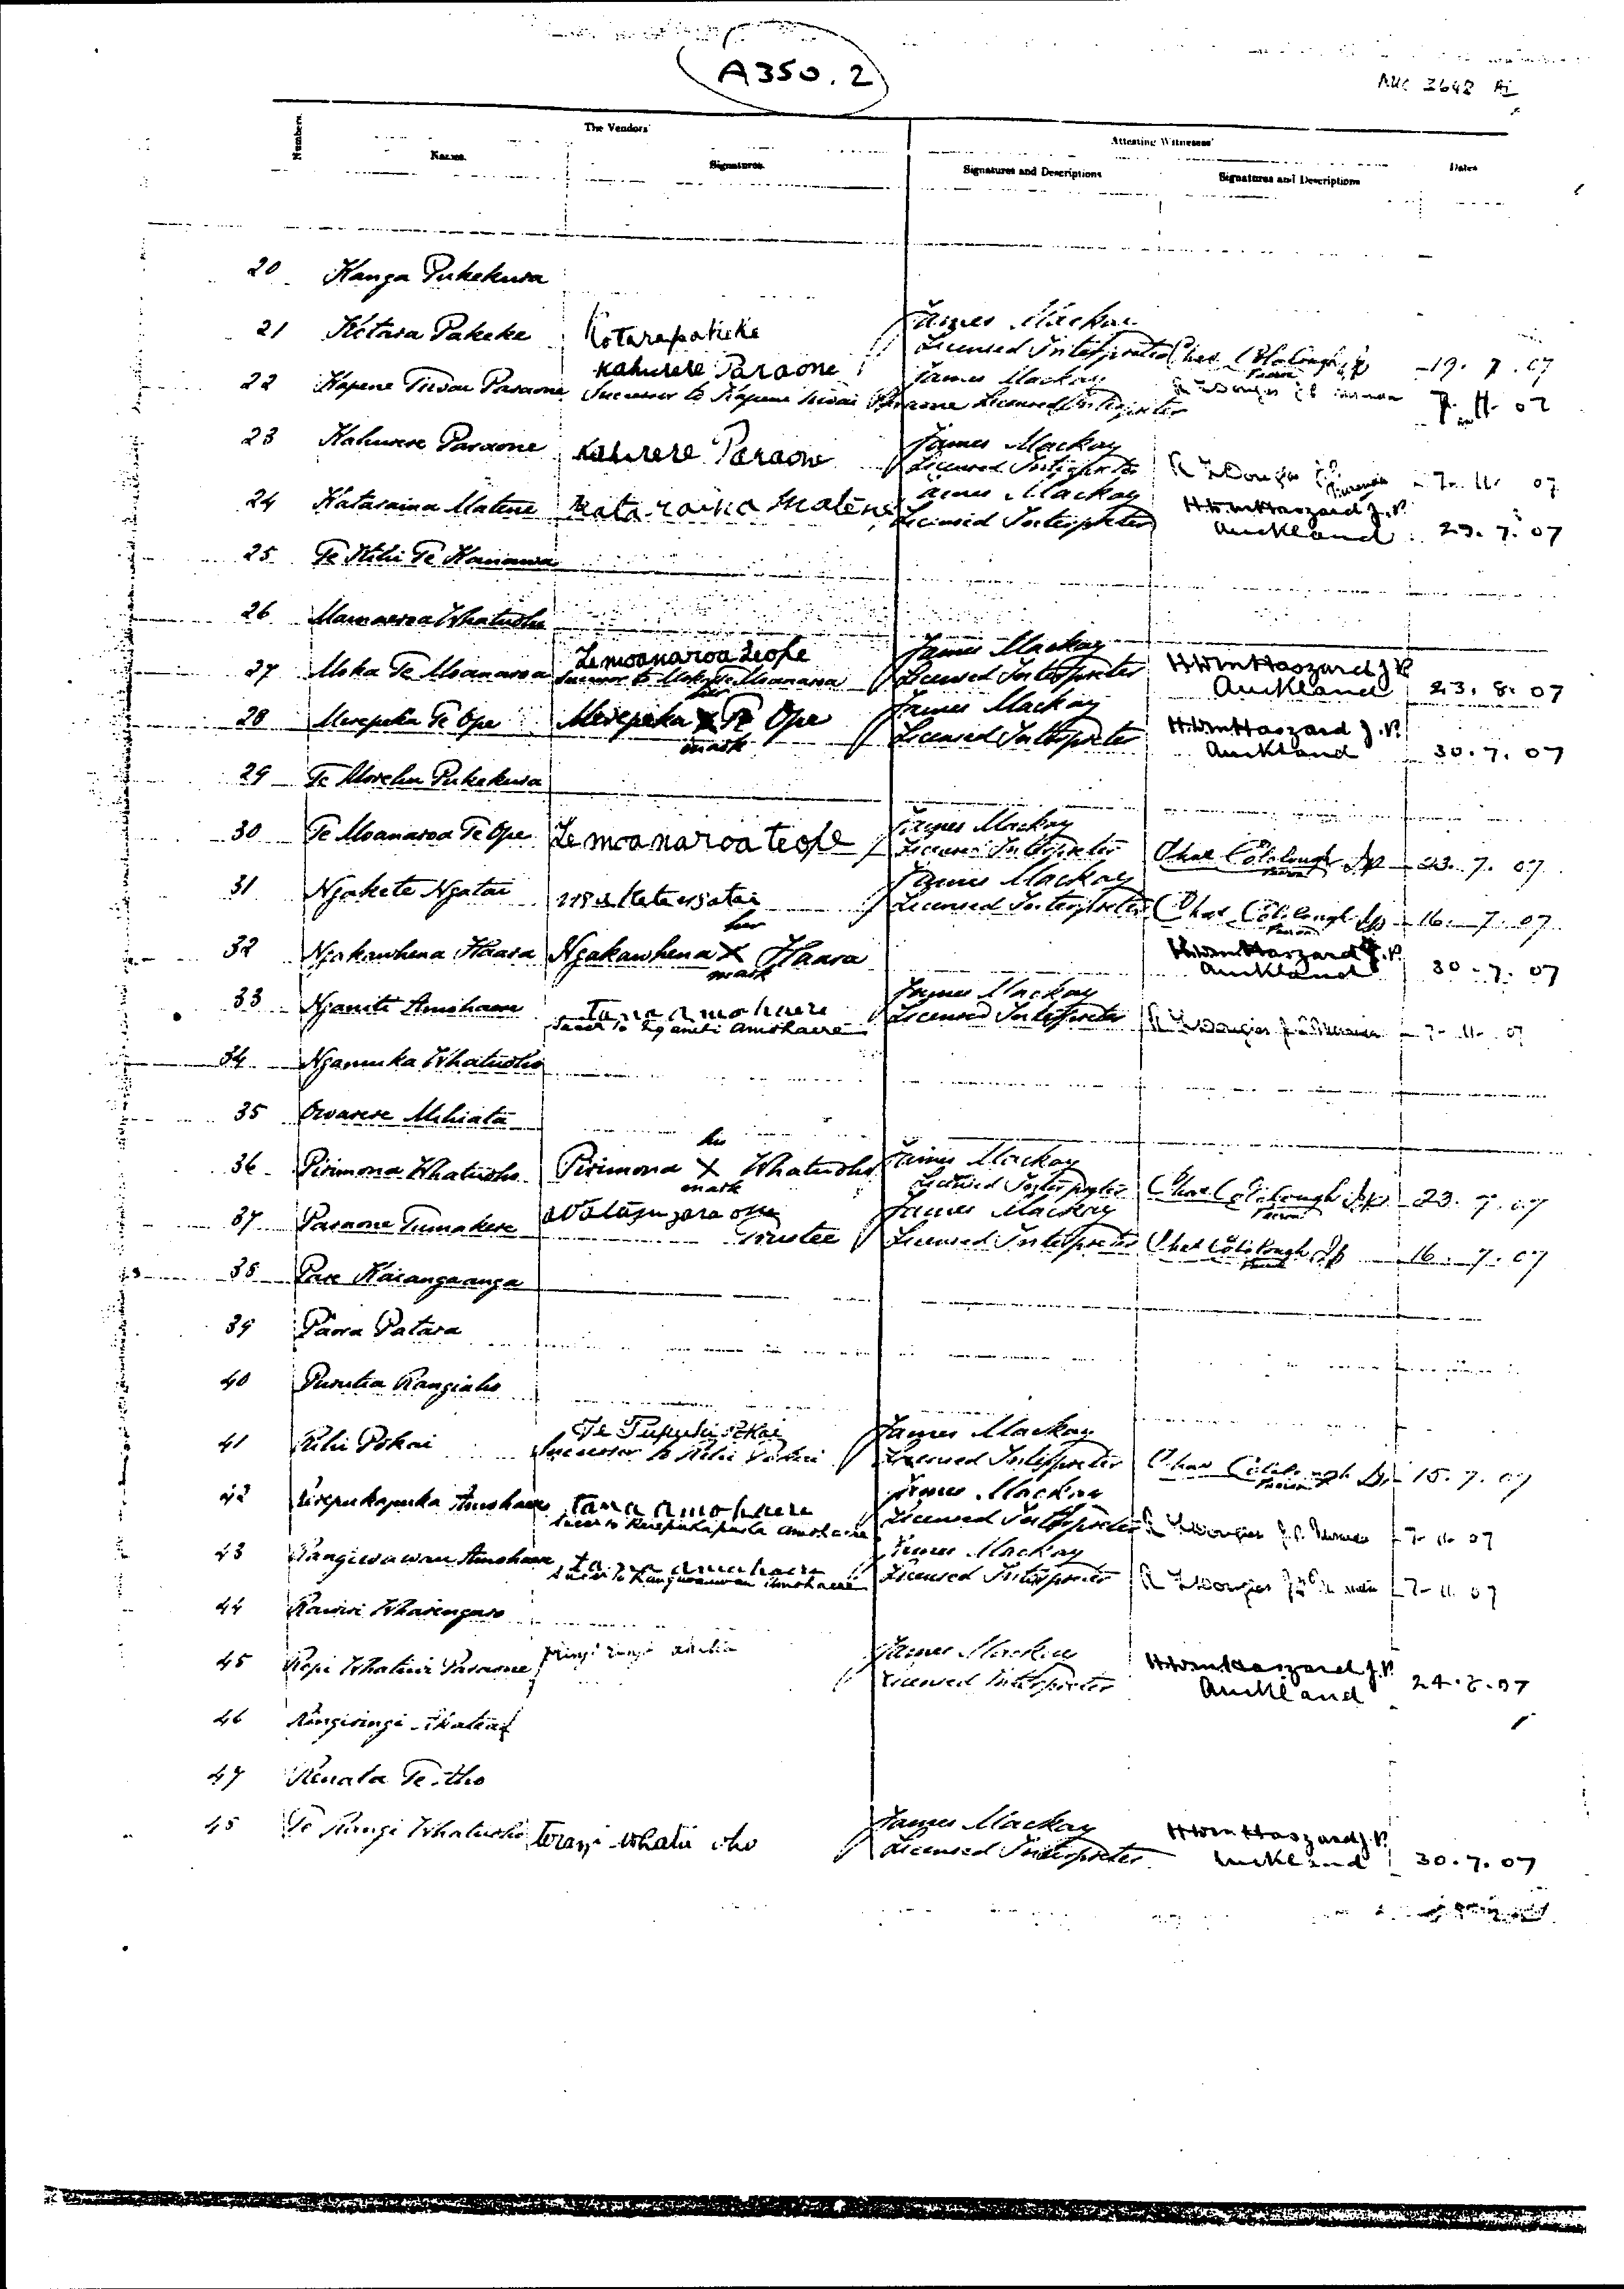 A350.2
AUC 3648 A2
Numbers.
The Vendors'
Attesting Witnesses'
Names.
Signatures.
Signatures and Descriptions
Signatures and Descriptions
Dates
20 Kanga Pukekura
21 Kotara Pakeke Kotarapakeke James Mackay
Licensed Interpreter Chas Colclough Jp 19. 7. 07
22 Kapene Tiwai Paraone Kahurere Paraone James Mackay
Successor to Kapene Tiwai Paraone Licensed Interpreter 7. 11. 07
23 Kahurere Paraone Kahurere Paraone James Mackay
Licensed Interpreter 7. 11. 07
24 Kataraina Matene Kataraina Matene James Mackay H.Wm Haszard J.P.
Licensed Interpreter Auckland 23. 7. 07
25 Te Kihi Te Hanawa
26 Mamaeroa Whatuoho
27 Moka Te Moanaroa Te moanaroa teope James Mackay H.Wm Haszard J.P.
Successor to Moka Te Moanaroa Licensed Interpreter Auckland 23. 8. 07
28 Merepeka Te Ope Merepeka her X mark Te Ope James Mackay H.Wm Haszard J.P.
Licensed Interpreter Auckland 30. 7. 07
29 Te Morehu Pukekura
30 Te Moanaroa Te Ope Te moanaroa teope James Mackay
Licensed Interpreter Chas Colclough Jp 23. 7. 07
31 Ngakete Ngatai James Mackay
Licensed Interpreter Chas Colclough Jp 16. 7. 07
32 Ngakawhena Haara Ngakawhena her X mark Haara H.Wm Haszard J.P.
Auckland 30. 7. 07
33 Nganiti Amohaere tana amohaere James Mackay
Succr to Nganiti Amohaere Licensed Interpreter 7. 11. 07
34 Ngamuka Whatuoho
35 Owarere Mihiata
36 Pirimona Whatuoho Pirimona his X mark Whatuoho James Mackay
Licensed Interpreter Chas Colclough Jp 23. 7. 07
37 Paraone Tumakere James Mackay
Trustee Licensed Interpreter Chas Colclough Jp 16. 7. 07
38 Pare Karangaanga
39 Paora Patara
40 Purutia Rangiaho
41 Rihi Pokai Te Tupuhi Pokai James Mackay
Successor to Rihi Pokai Licensed Interpreter Chas Colclough Jp 15. 7. 07
42 Rerepukapuka Amohaere tana amohaere James Mackay
Succr to Rerepukapuka Amohaere Licensed Interpreter 7. 11. 07
43 Rangiwawau Amohaere tana amohaere James Mackay
Succr to Rangiwawau Amohaere Licensed Interpreter 7. 11. 07
44 Rawiri Wharengaro
45 Ropi Whatiwi Paraone James Mackay H.Wm Haszard J.P.
Licensed Interpreter Auckland 24. 8. 07
46 Ringiringi
47 Renata Te Iho
48 Te Rangi Whatuoho Terangi Whatu oho James Mackay H.Wm Haszard J.P.
Licensed Interpreter Auckland 30. 7. 07